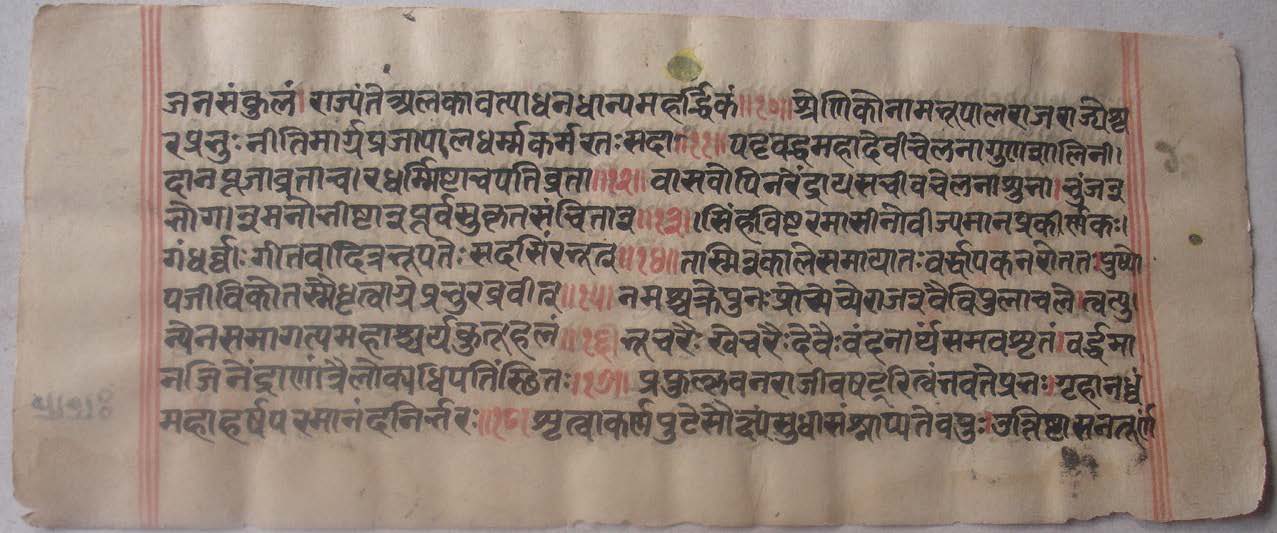 जनसंकुलं। राज्यंते अलकावत्पाधनधान्यमहर्द्धिकं॥१०॥ श्रेणिकोनामनूपालराजराज्येशृ
रप्रनुः नीतिमार्गप्रजापालधर्म्मकर्मरतः सदा॥११॥ पट्टवद्धमहादेवीचेलनागुणशालिनी।
दानपूजाव्रताचारधर्म्मिष्टाचपतिव्रता॥१२॥ वासवोपिनरेंद्रायसचीवचेलनाश्रुना। चुंजन्
नोगान्मनोनीष्टान्पूर्वसुकृतसंचितान्॥१३॥ सिंहविष्टरमासीनोवीज्यमानप्रकीर्णकः।
गंधर्व्वाः गीतवादित्रनूपतेः सदसिंरनूत्॥१४॥ तास्मिन्कालेसमायातः वर्द्धापकनरोततः। पुष्पो
पजीविकोतस्मैधृत्वाग्रेप्रनुरब्रवीत्॥१५॥ नमश्चक्रेपुनः प्रोच्येराजन्वैविपुलाचले। त्वत्पु
न्येनसमागत्यमहाश्चर्यकुतूहलं॥१६॥ नूचरैः खेचरैः देवैः वंदनार्थंसमवशृतं। वर्द्धमा
नजिनेंद्राणांत्रैलोक्याधिपतिंस्छितः॥१७॥ प्रफुल्लवनराजीवषट्रित्वंनवतेप्रनः। गृहानर्धं
महाहर्षपरमानंदनिर्त्तरः॥१८॥ श्रृत्वाकर्णपुटेसौ सुधासं वपुः। उत्तिष्टासनतूर्णं